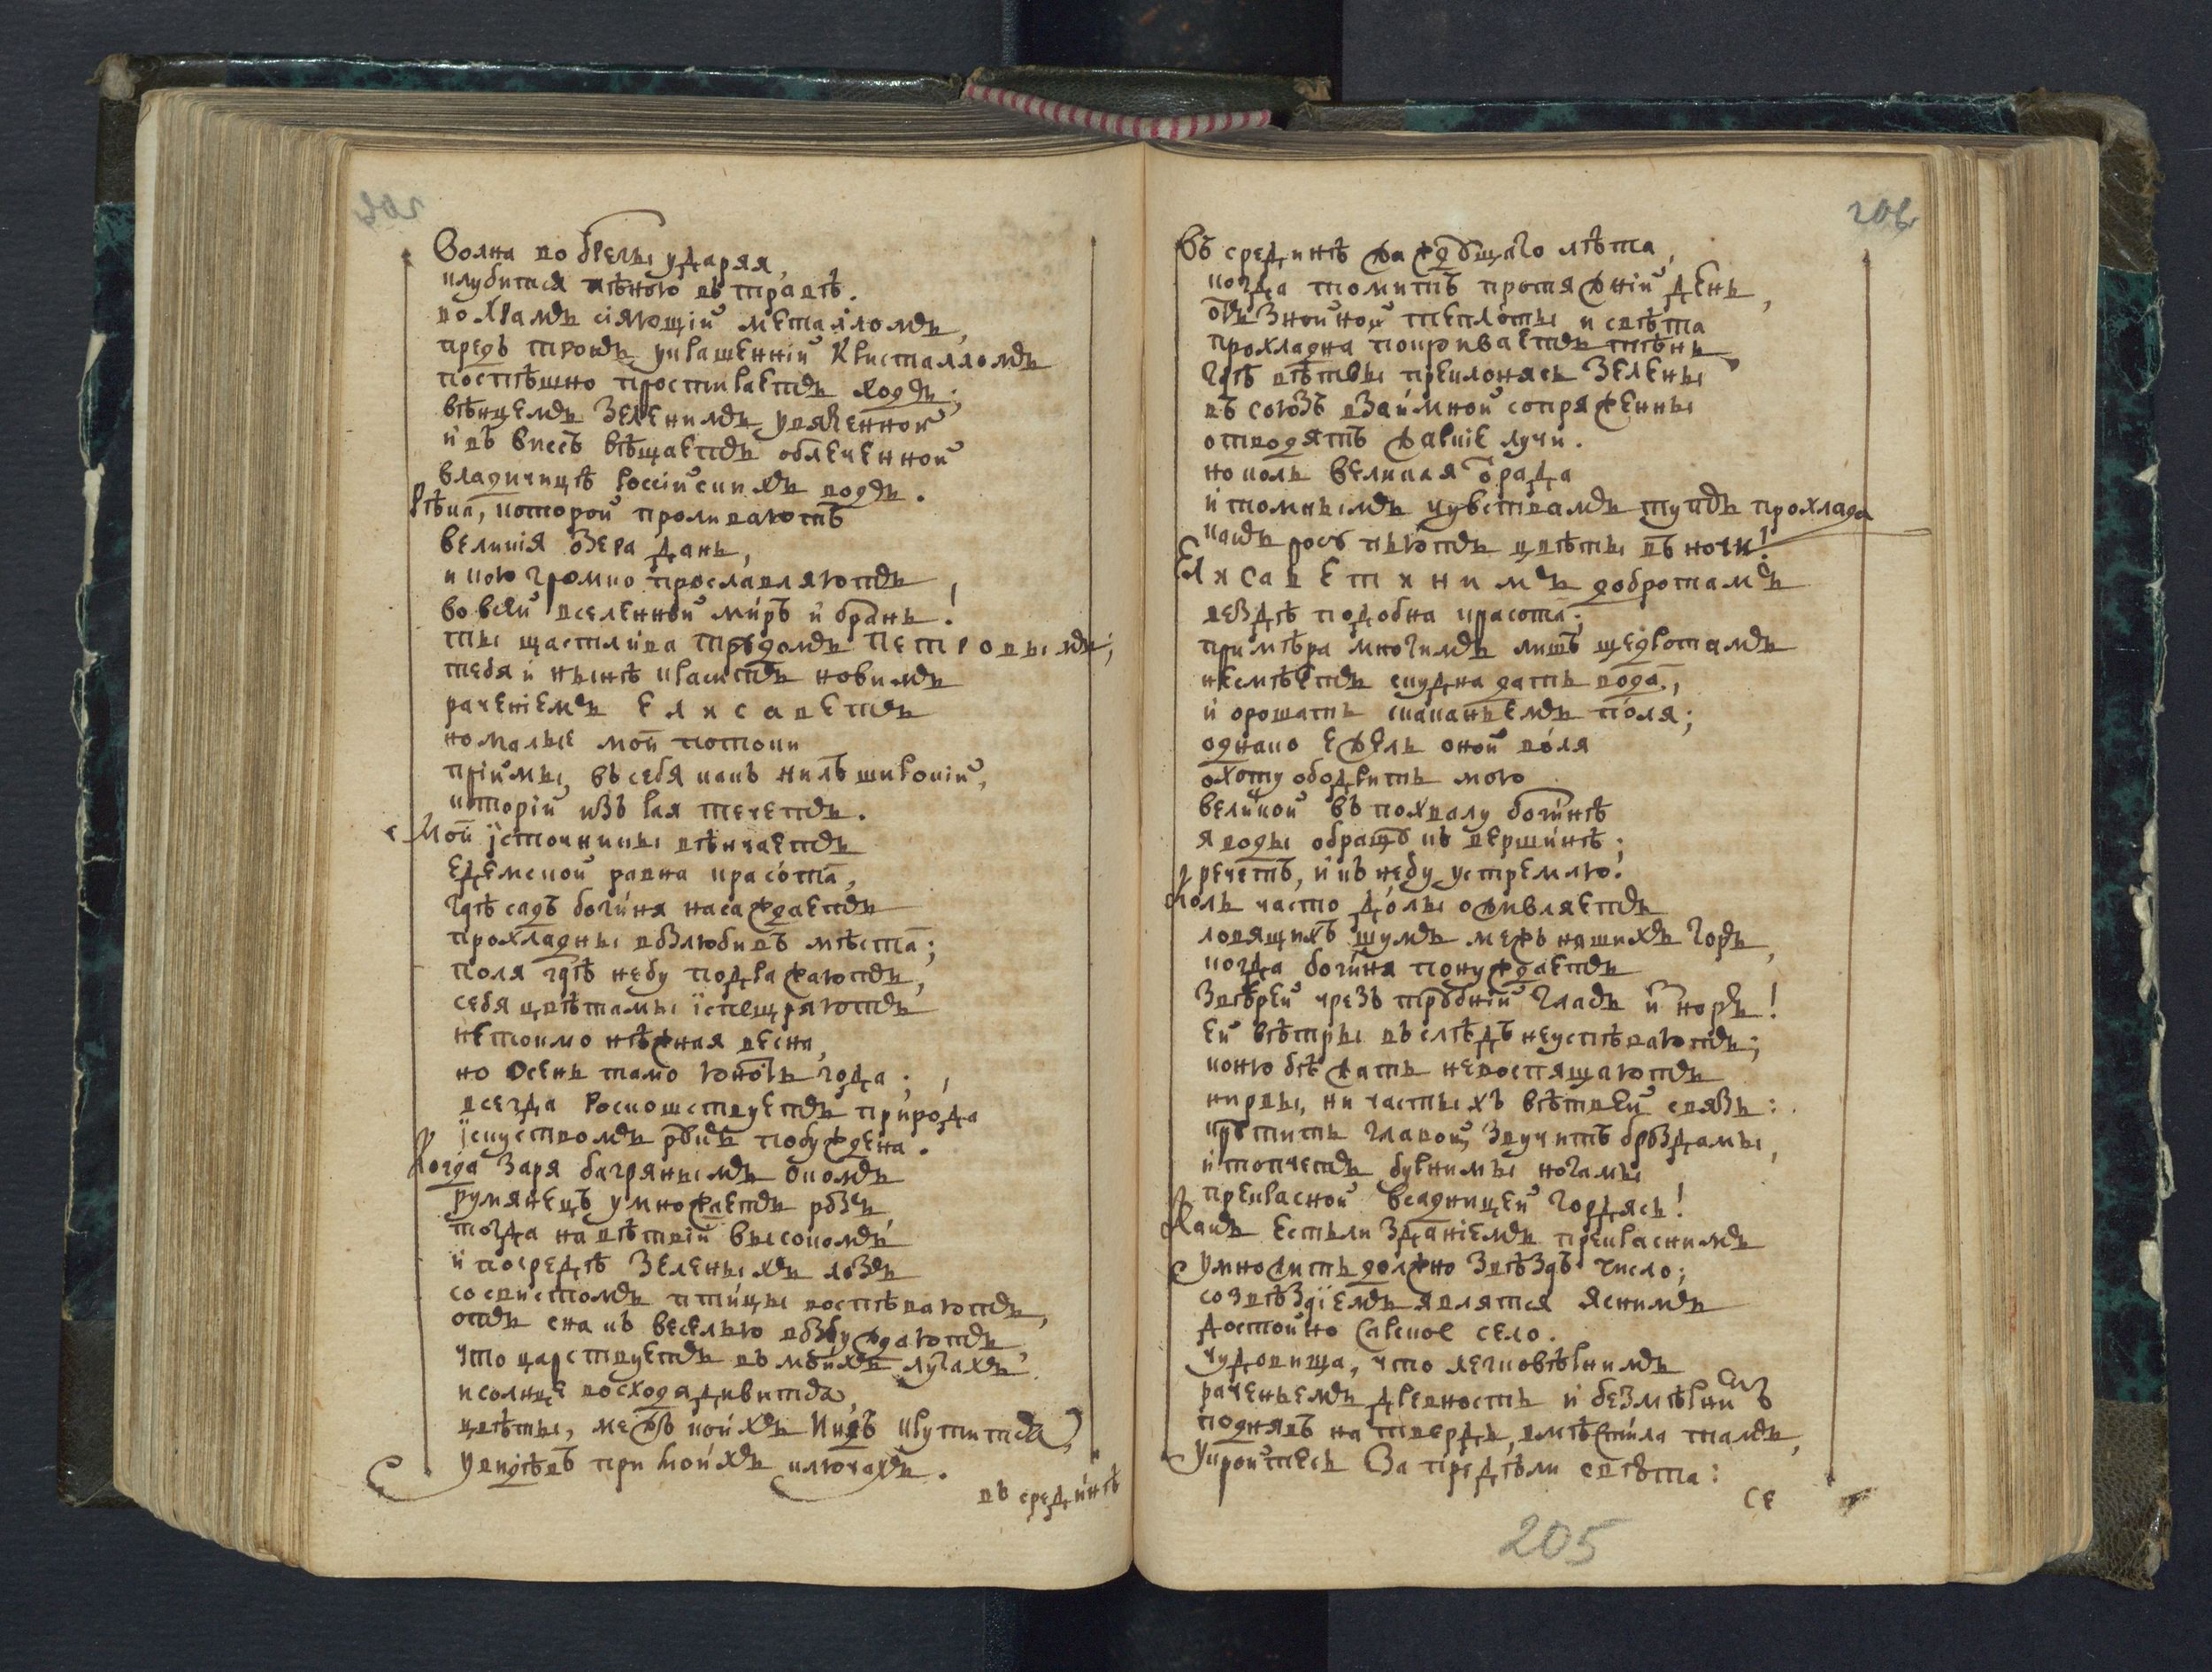 Волна во бреги ударяя,
клубится пѣною въ травѣ.
во храмъ сіяющій металломъ,
предъ тронъ украшенній Кристалломъ
поспѣшно простираетъ ходъ;
вѣнцемъ зеленимъ увязенной
и въ виссъ вѣщаетъ облеченной
владичицѣ россійскихъ водъ.
Рѣка, которой проливаютъ
великія озера дань,
и кою громко прославляютъ
во всей вселенной миръ и брань!
ты щастлива трудомъ Петровымъ;
тебя и нынѣ краситъ новимъ
раченіемъ Елисаветъ
но малые мои потоки
пріимы, въ себя какъ нилъ широкій,
которій изъ рая течетъ.
Мои источники вѣнчаетъ
едемской равна красота,
гдѣ садъ богиня насаждаетъ
прохладны возлюбивъ мѣста;
поля гдѣ небу подражаютъ,
себя цвѣтамы іспещряютъ
не токмо нѣжная весна,
но осень тамо юность года;
всегда роскошствуетъ природа
іскуствомъ рукъ побуждена.
Когда заря багрянымъ окомъ
румянецъ умножаетъ розъ
тогда на вѣтвій высокомъ
и посредѣ зеленыхъ лозъ
со свистомъ птицы воспѣваютъ,
отъ сна къ веселью возбуждаютъ,
что царствуетъ въ моихъ лугахъ.
и солнце восходя дивится,
цвѣты, межъ коихъ Индъ крутится,
увидѣвъ при моихъ ключахъ.
въ срединѣ
206
Въ срединѣ жаждущаго лѣта,
когда томитъ протяжній день,
отъ знойной теплоты и свѣта
прохладна покриваетъ тѣнь
гдѣ вѣтвы преклонясь зелены
въ союзъ взаймной сопряженны
отводятъ жаркіе лучи.
но коль великая отрада
и томнымъ чувствамъ тутъ прохлада
какъ росу пьютъ цвѣты въ ночи!
Елисаветинимъ добротамъ
вездѣ подобна красота;
примѣра многимъ лишъ щедротамъ
не смѣетъ скудна дать вода,
и орошать скаканьемъ поля;
однако ежель оной воля
охоту ободрить мою
великой въ похвалу богинѣ
я воды обращу къ вершинѣ;
речетъ, и къ небу устремлю.
Коль часто долы оживляетъ
ловящихъ шумъ межъ нашихъ горъ,
когда богиня понуждаетъ
звѣрей чрезъ трубній гласъ и норъ!
ей вѣтры въ слѣдъ неуспѣваютъ;
коню бѣжать невоспящаютъ
ни рвы, ни частыхъ вѣтвей связь:
крутитъ главой, звучитъ броздамы,
и топчетъ бурнимы ногамы
прекрасной всадницей гордясь!
Какъ естьли зданіемъ прекраснимъ
умножить должно звѣздъ число;
созвѣздіемъ являтся яснимъ
достойно Сарское село.
чудовища, что легковѣрнимъ
раченьемъ древность и безмѣрнимъ
поднявъ на твердь, вмѣстила тамъ,
укройтесь за предѣли свѣта:
се
205